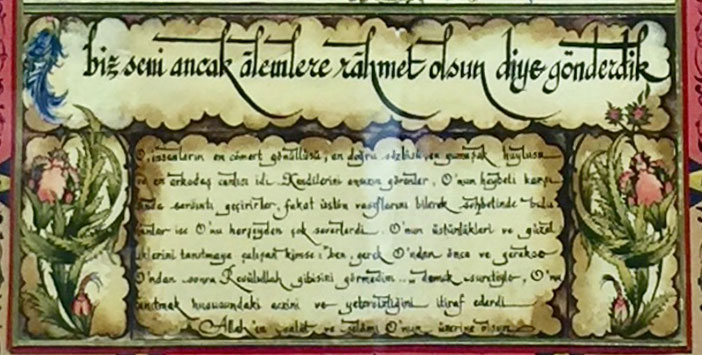 biz seni ancak âlemlere râhmet olsun diye gönderdik
O, insanların en cömert gönüllüsü, en doğru sözlüsü, en yumuşak huylusu
ve en arkadaş canlısı idi. Kendilerini ansızın görenler, O'nun heybeti karşı
sında sarsıntı geçirirler, fakat üstün vasıflarını bilerek sohbetinde bulu
nanlar ise O'nu herşeyden çok severlerdi. O'nun üstünlükleri ve güzel
liklerini tanıtmaya çalışan kimse: "ben, gerek O'ndan önce ve gerekse
O'ndan sonra Resûlullah gibisini görmedim..." demek suretiyle, O'nu
tanıtmak hususundaki aczini ve yetersizliğini itiraf ederdi.
Allah'ın salât ve selâmı O'nun üzerine olsun